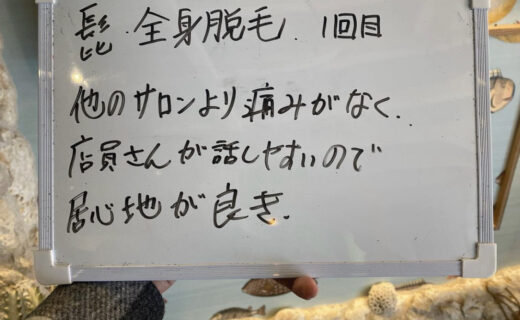 髭 全身脱毛. 1回目
他のサロンより痛みがなく.
店員さんが話しやすいので
居心地が良き.